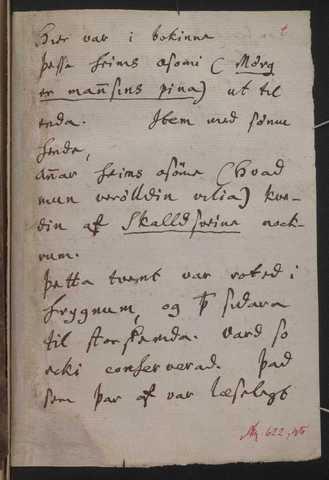 hier var i bokinne
þesse heims osomi (Mórg
er mannsins pina) ut til
enda. Item med sómu
hende,
añar heims osóme (hvad
mun verólldin vilia) kve-
din af Skalldsveine nock-
rum.
Þetta tvent var roted i
hrygnum, og þ̄ sidara
til storskemda. vard so
ecki conserverad. það
sem þar af var læselegt
AM. 622, 4to